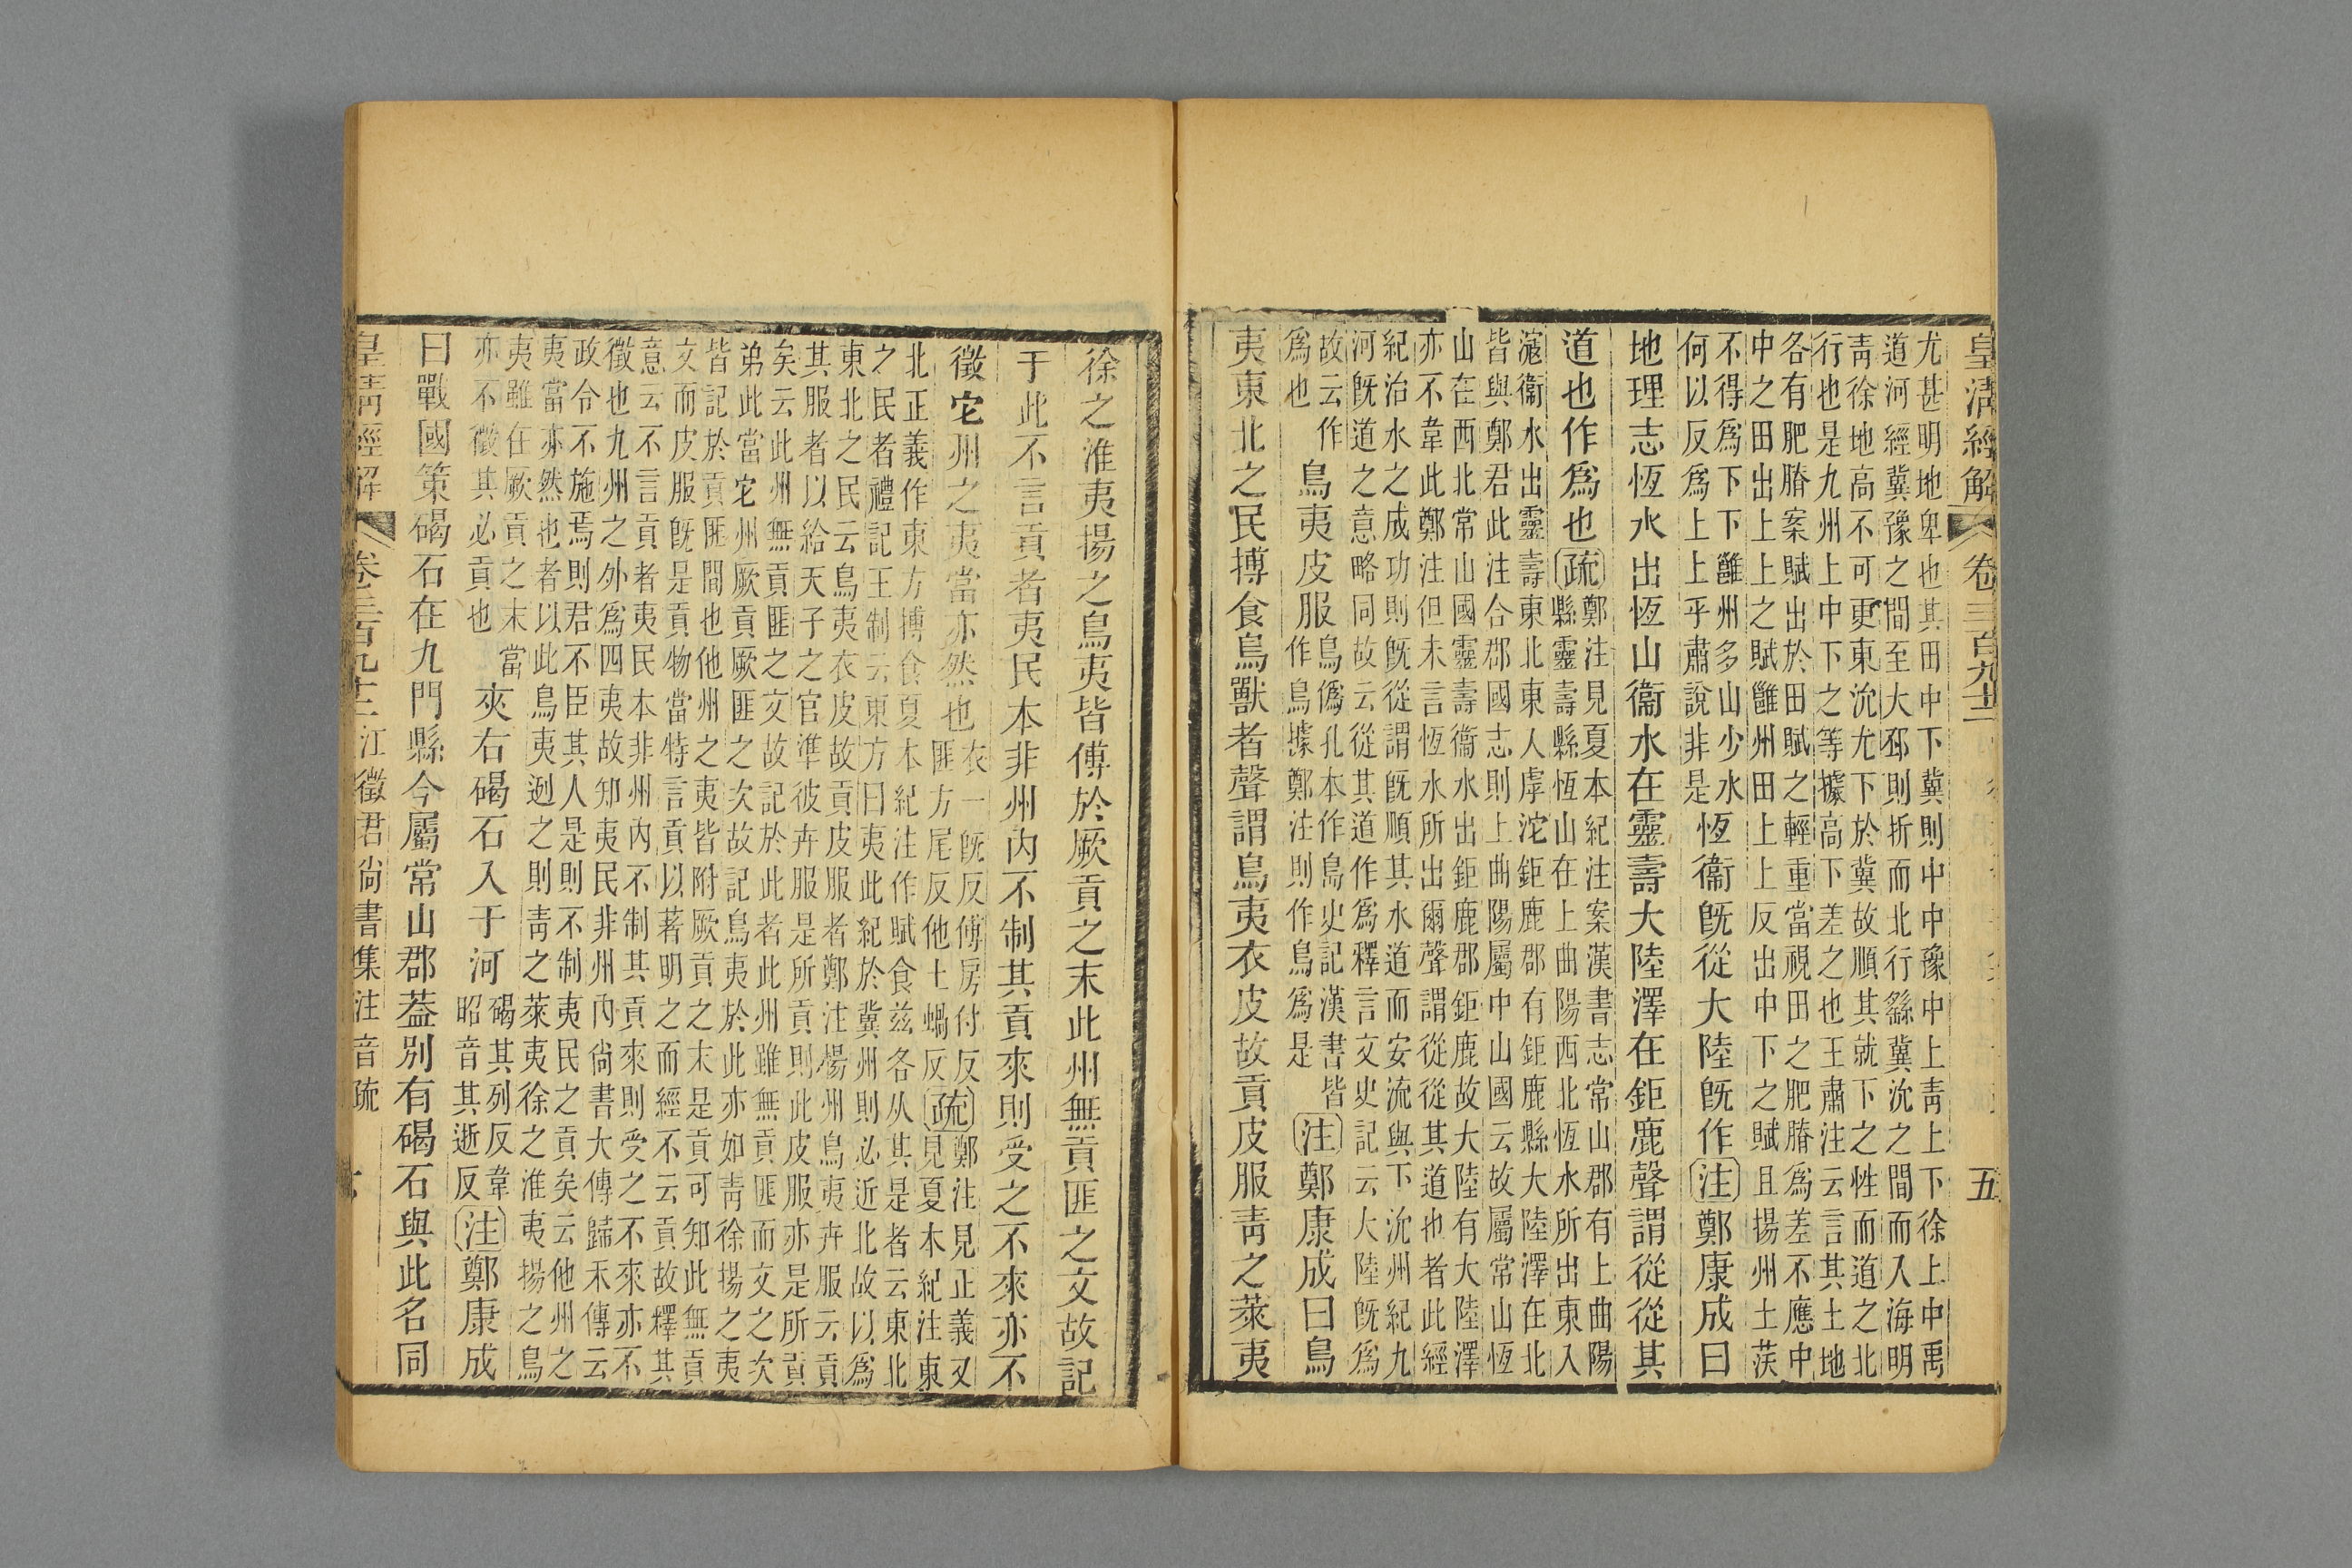 皇清經解　卷三百九十二　五
尤甚明地卑也其田中下冀則中中豫中上靑上下徐上中禹
道河經冀豫之間至大邳則折而北行繇冀沇之間而入海明
靑徐地高不可更東沇尤下於冀故順其就下之性而道之北
行也是九州上中下之等據高下差之也王肅注云言其土地
各有肥腃案賦出於田賦之輕重當視田之肥腃爲差不應中
中之田出上上之賦雝州田上上反出中下之賦且揚州土
不得爲下下雝州多山少水
何以反爲上上乎肅說非是
恆衞旣從大陸旣作注鄭康成曰
地理志恆水出恆山衞水在靈壽大陸澤在鉅鹿聲謂從從其
道也作爲也疏
鄭注見夏本紀注案漢書志常山郡有上曲陽
縣靈壽縣恆山在上曲陽西北恆水所出東入
滱衞水出靈壽東北東入虖沱鉅鹿郡有鉅鹿縣大陸澤在北
皆與鄭君此注合郡國志則上曲陽屬中山國云故屬常山恆
山在西北常山國靈壽衞水出鉅鹿郡鉅鹿故大陸有大陸澤
亦不韋此鄭注但未言恆水所出爾聲謂從從其道也者此經
紀治水之成功則旣從謂旣順其水道而安流與下沇州紀九
河旣道之意略同故云從其道作爲釋言文史記云大陸旣爲
故云作
爲也
鳥夷皮服
鳥僞孔本作島史記漢書皆
作鳥據鄭注則作鳥爲是
注鄭康成曰鳥
夷東北之民搏食鳥獸者聲謂鳥夷衣皮故貢皮服靑之萊夷
徐之淮夷揚之鳥夷皆傅於厥貢之末此州無貢匪之文故記
于此不言貢者夷民本非州內不制其貢來則受之不來亦不
徵它州之夷當亦然也
衣一旣反傅房付反
匪方尾反他土蝸反
疏
鄭注見正義又
見夏本紀注東
北正義作東方搏食夏本紀注作賦食兹各从其是者云東北
之民者禮記王制云東方曰夷此紀於冀州則必近北故以爲
東北之民云鳥夷衣皮故貢皮服者鄭注楊州鳥夷卉服云貢
其服者以給天子之官準彼卉服是所貢則此皮服亦是所貢
矣云此州無貢匪之文故記於此者此州雖無貢匪而文之次
弟此當它州厥貢厥匪之次故記鳥夷於此亦如靑徐揚之夷
皆記於貢匪間也他州之夷皆附厥貢之末是貢可知此無貢
文而皮服旣是貢物當特言貢以著明之而經不云貢故釋其
意云不言貢者夷民本非州內不制其貢來則受之不來亦不
徵也九州之外爲四夷故知夷民非州內尙書大傳歸禾傳云
政令不施焉則君不臣其人是則不制夷民之貢矣云他州之
夷當亦然也者以此鳥夷迾之則靑之萊夷徐之淮夷揚之鳥
夷雖在厥貢之末當
亦不徵其必貢也
夾右碣石入于河
碣其列反韋
昭音其逝反
注鄭康成
曰戰國策碣石在九門縣今屬常山郡葢別有碣石與此名同
皇淸經解　卷三百九十二　江徵君尙書集注音疏